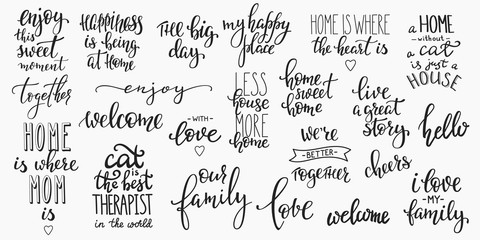 enjoy
this
sweet
moment
Happiness
is being
at Home
THE big
day
my happy
place
HOME IS WHERE
the heart is
a HOME
without
a cat
is just a
HOUSE
together
enjoy
LESS
house
MORE
home
home
sweet
home
live
a great
story
hello
welcome
WITH
love
HOME
is where
MOM
is
cat
is
the best
THERAPIST
in the world
we're
BETTER
TOGETHER
cheers
our
family
love
welcome
i love
MY
family